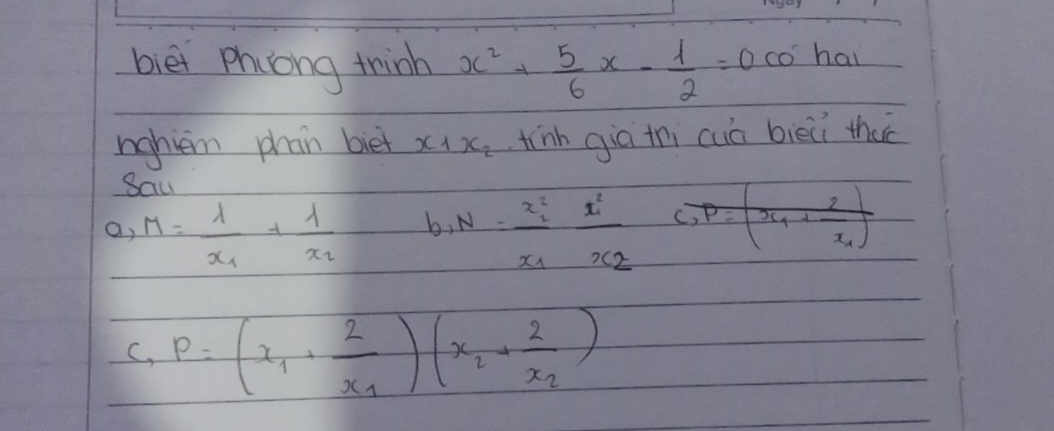 Ngày / /
biết phương trình x² + 5/6 x - 1/2 = 0 có hai
nghiệm phân biệt x₁ x₂. tính giá trị của biểu thức
sau
a, M = 1/x₁ + 1/x₂ b, N = x₂²/x₁ x₁²/x2 c, P = (x₁ + 2/x₁)
c, P = (x₁ + 2/x₁)(x₂ + 2/x₂)